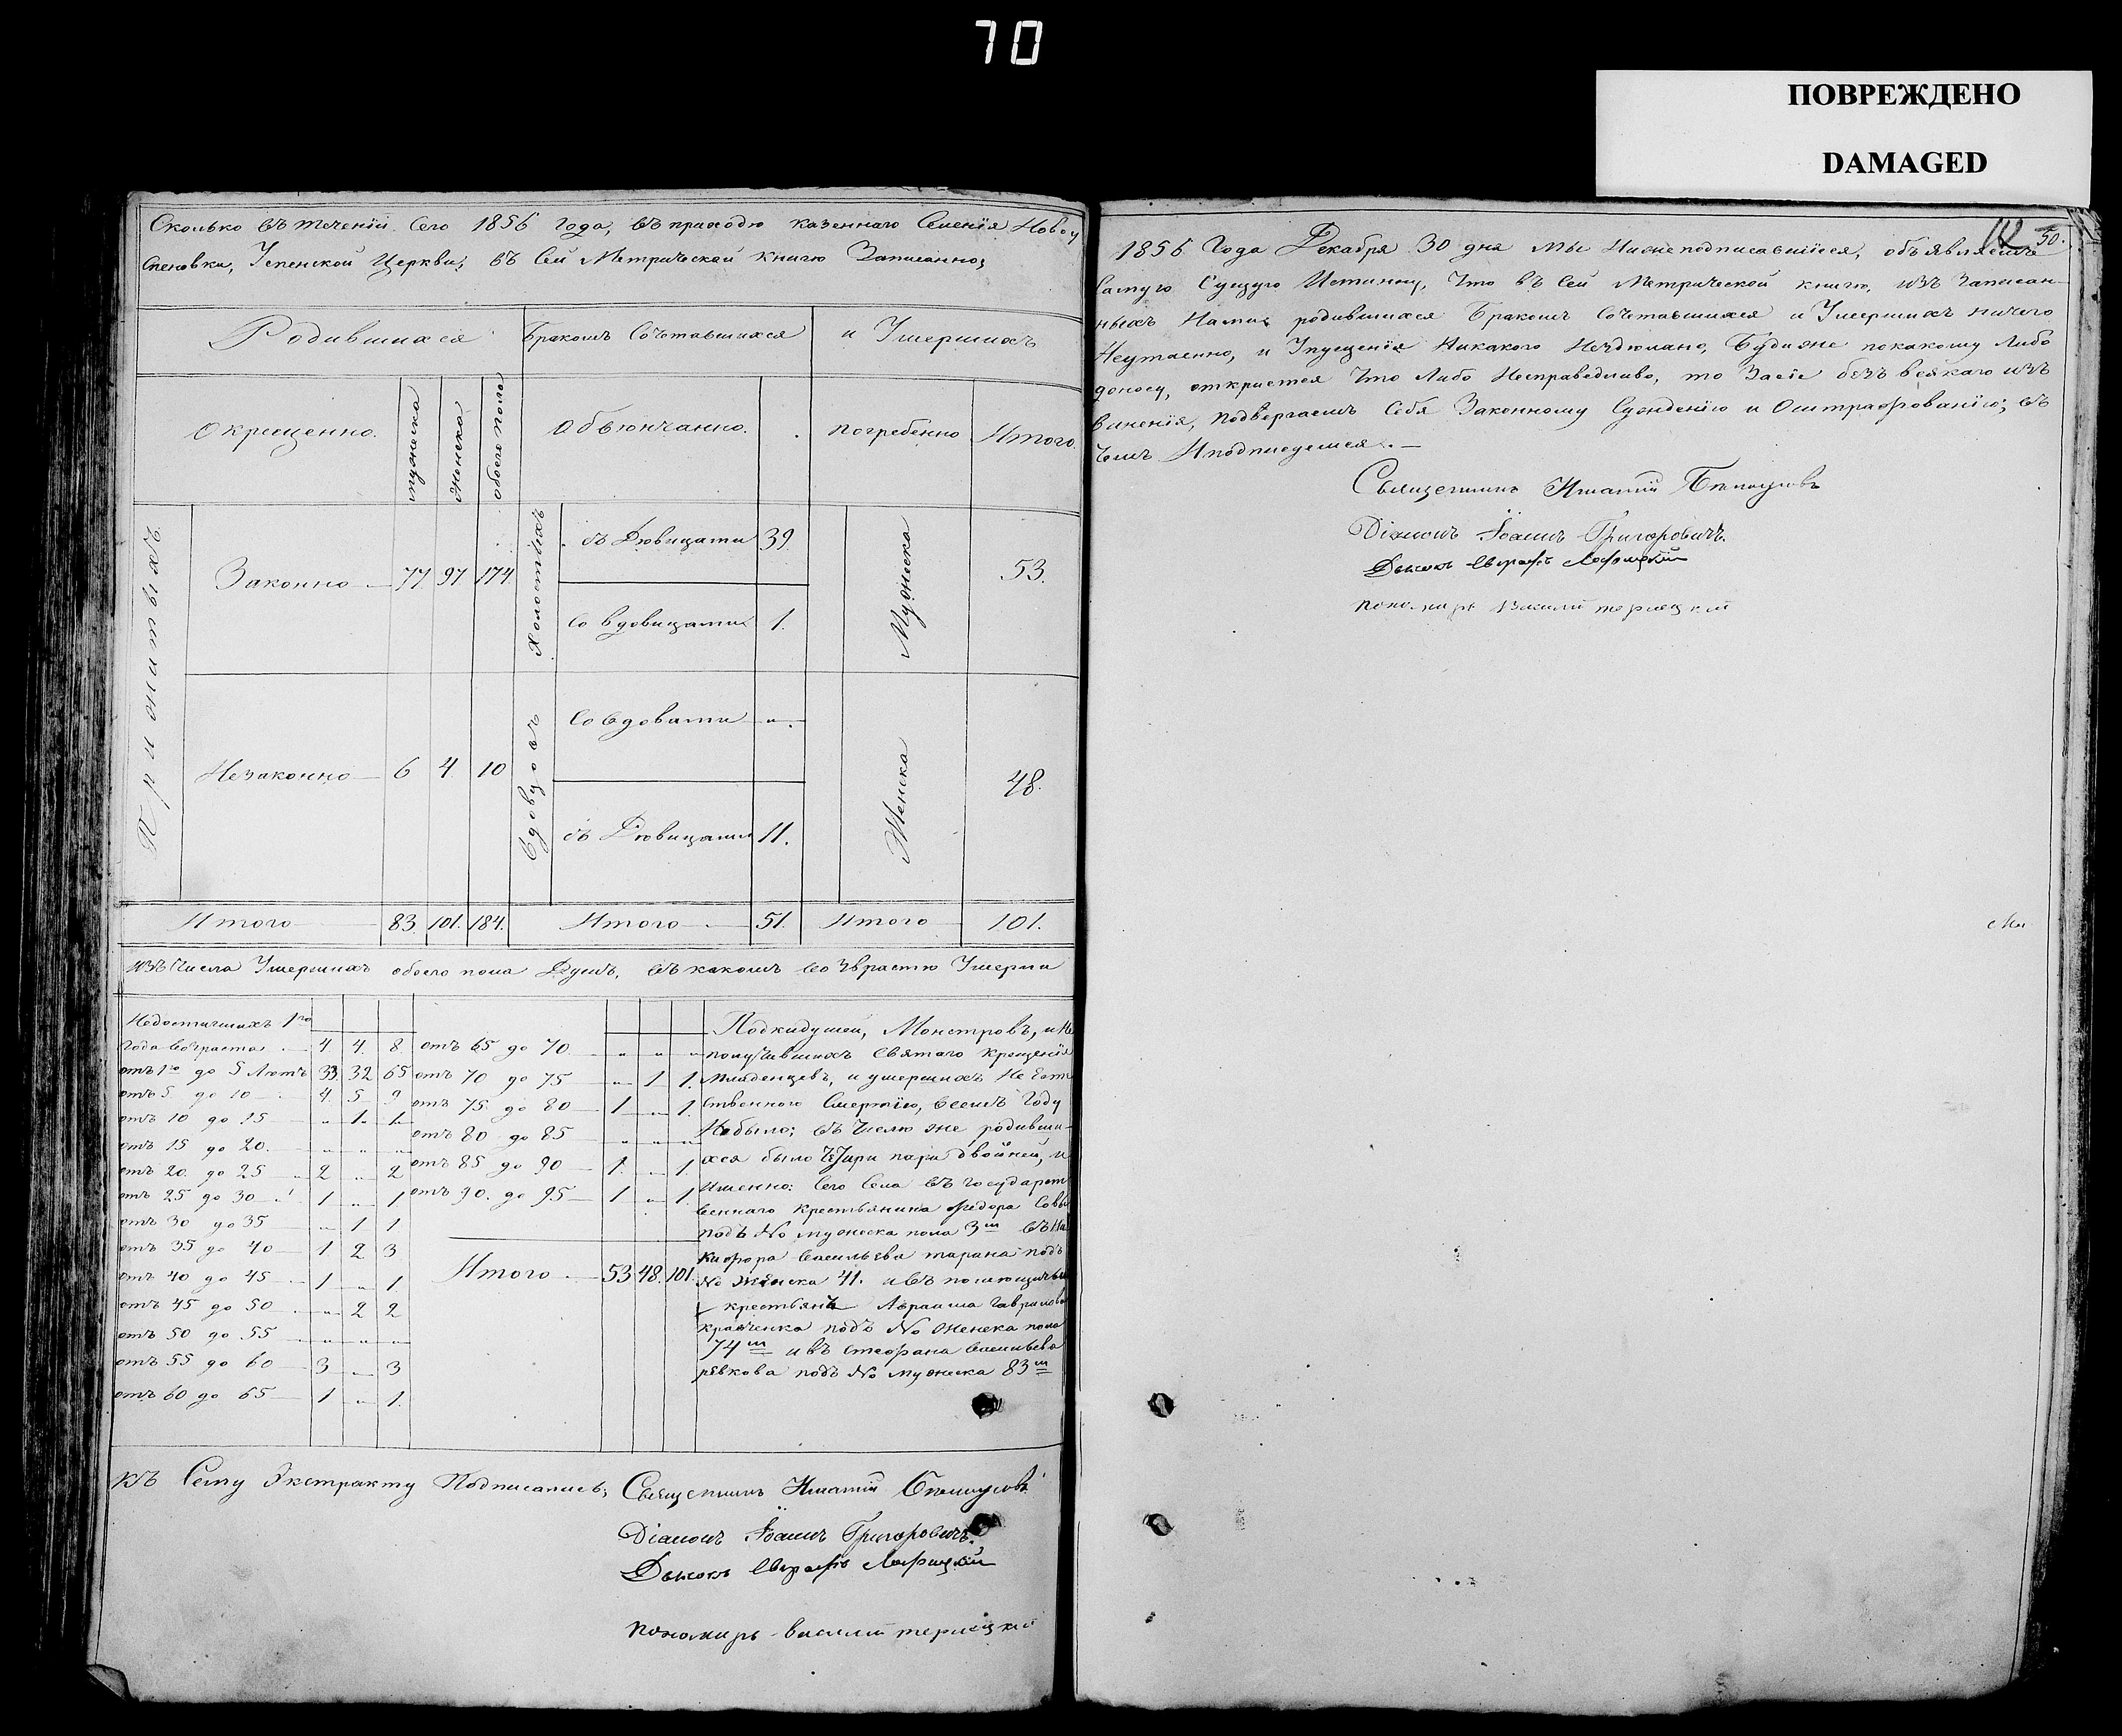 70
ПОВРЕЖДЕНО
DAMAGED
Сколько въ теченіи сего 1856 года, въ приходѣ казеннаго селенія Ново
спеновки, Успенской Церкви, въ сей Метрической книгѣ Записанно;
Родившихся
Бракомъ Сочетавшихся
и Умершихъ
Окрещенно.
мужеска
женска
обоего пола
Обвѣнчанно.
погребенно
Итого
Законно 77. 97. 174.
Холостыхъ
съ Дѣвицами 39.
Со вдовицами 1.
Мужеска
53.
Незаконно 6 4. 10
Вдовцовъ
Со вдовами „
съ Дѣвицами 11.
Женска
48.
Итого 83. 101. 184. Итого 51. Итого 101.
изъ Числа Умершихъ обоего пола Душъ, въ какомъ возврастѣ Умерли
Недостигшихъ 1го
Года возраста 4. 4. 8
отъ 1го до 5 Лѣтъ 33. 32 65
отъ 5 до 10 4. 5 9
отъ 10 до 15 „ 1. 1.
отъ 15 до 20. „ „ „
отъ 20. до 25 2 „ 2
отъ 25 до 30 1 „ 1
отъ 30 до 35 „ 1 1
отъ 35 до 40 1 2 3
отъ 40 до 45 1 „ 1.
отъ 45 до 50 „ 2 2
отъ 50 до 55 „ „ „
отъ 55 до 60 3 „ 3
отъ 60 до 65 1 „ 1.
отъ 65 до 70 „ „ „
отъ 70 до 75 „ 1 1.
отъ 75 до 80 1 „ 1.
отъ 80 до 85 „ „ „
отъ 85 до 90 1. „ 1.
отъ 90. до 95 1 „ 1.
Итого 53 48. 101.
Подкидушей, Монстровъ, и Не
получившихъ Святаго крещенія
Младенцевъ, и умершихъ Не Есте
ственною Смертію, всемъ Году
Небыло; въ Числѣ же родивши-
хся было Четыри пари двойней, и
Именно: Сего Села въ государст
веннаго крестьянина Федора
подъ No мужеска пола 3m въ Ни
кифора Васильева тарана подъ
No женска 41. и въ помѣщичьи
крестьянъ Авраама Гаврилова
кравченка подъ No женска пола
74m и въ стефана Васильева
ревкова подъ No мужеска 83m
Къ Сему Экстракту Подписались; Священникъ Игнатій
Діаконъ Іоаннъ Григоровичъ.
Дьячокъ
пономарь василій терлецкій
50.
1856 Года Декабря 30 дня Мы Нижеподписавшіися, объявляемъ
Самую Сущую Истинну, Что въ Сей Метрической книгѣ, изъ Записан-
ныхъ Нами родившихся Бракомъ Сочетавшихся и Умершихъ ничего
Неутаенно, и Упущенія Никакого Неъдѣлано, Будиже покакому Либо
доносу, откриется Что Либо Несправедливо, то Засіе безъ всякаго изъ
виненія, подвергаемъ Себя Законному Сужденію и Оштрафованію; въ
чемъ Иподписуемся.
Священникъ Игнатій
Діаконъ Іоаннъ Григоровичъ.
Дьячокъ
пономарь Василій терлецкій